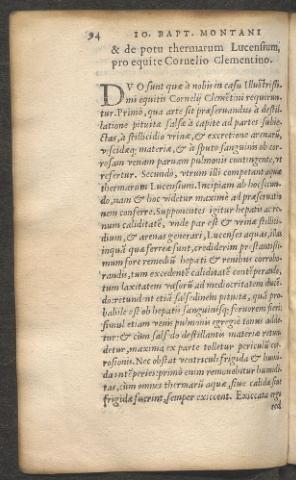 94 IO. BAPT. MONTANI
& de potu thermarum Lucensium,
pro equite Cornelio Clementino.
DVO sunt quæ à nobis in casu Illustrissi-
mi equitis Cornelij Clemẽtini requirun-
tur. Primò, qua arte sit præseruandus à destil-
latione pituitæ salsæ à capite ad partes subie-
ctas, à stillicidio vrinæ, & excretione arenarũ,
viscidæq; materiæ, & à sputo sanguinis ob cor-
rosam venam paruam pulmonis contingente, vt
refertur. Secundò, vtrum illi competant aquæ
thermarum Lucensium. Incipiam ab hoc secun-
do, nam & hoc videtur maximè ad præseruatio
nem conferre. Supponentes igitur hepatis ac re-
num caliditatẽ, vnde par est & vrinæ stillici-
dium, & arenas generari, Lucenses aquas, illas
inquã quæ ferreæ sunt, crediderim præstantissi-
mum fore remediũ hepati & renibus corrobo-
randis, tum excedentẽ caliditatẽ contẽperando,
tum laxitatem vasorũ ad mediocritatem ducẽ-
do: retundunt etiã salsedinem pituitæ, quã pro-
babile est ob hepatis sanguinisq; feruorem fieri:
simul etiam venis pulmonis egregiè tonus addi-
tur: & cùm salsedo destillantis materiæ retun-
detur, maxima ex parte tolletur periculũ cor-
rosionis. Nec obstat ventriculi frigida & humi-
da intẽperies: primò enim remouebitur humidi-
tas, cùm omnes thermarũ aquæ, siue calidæ siue
frigidæ fuerint, semper exiccent. Exiccata ergo